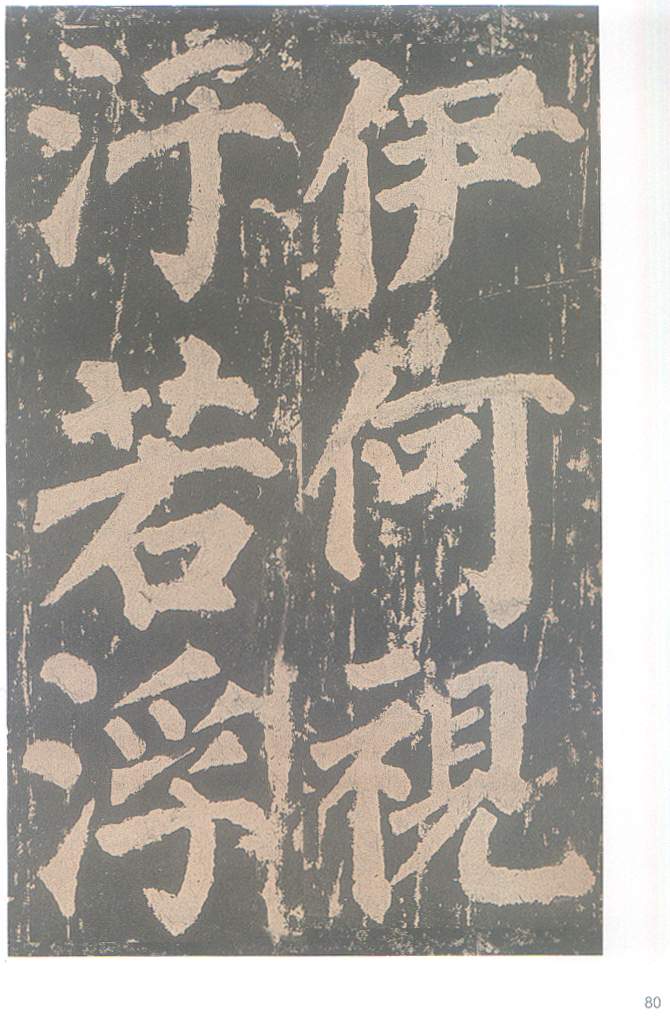 伊何視
汙若浮
80